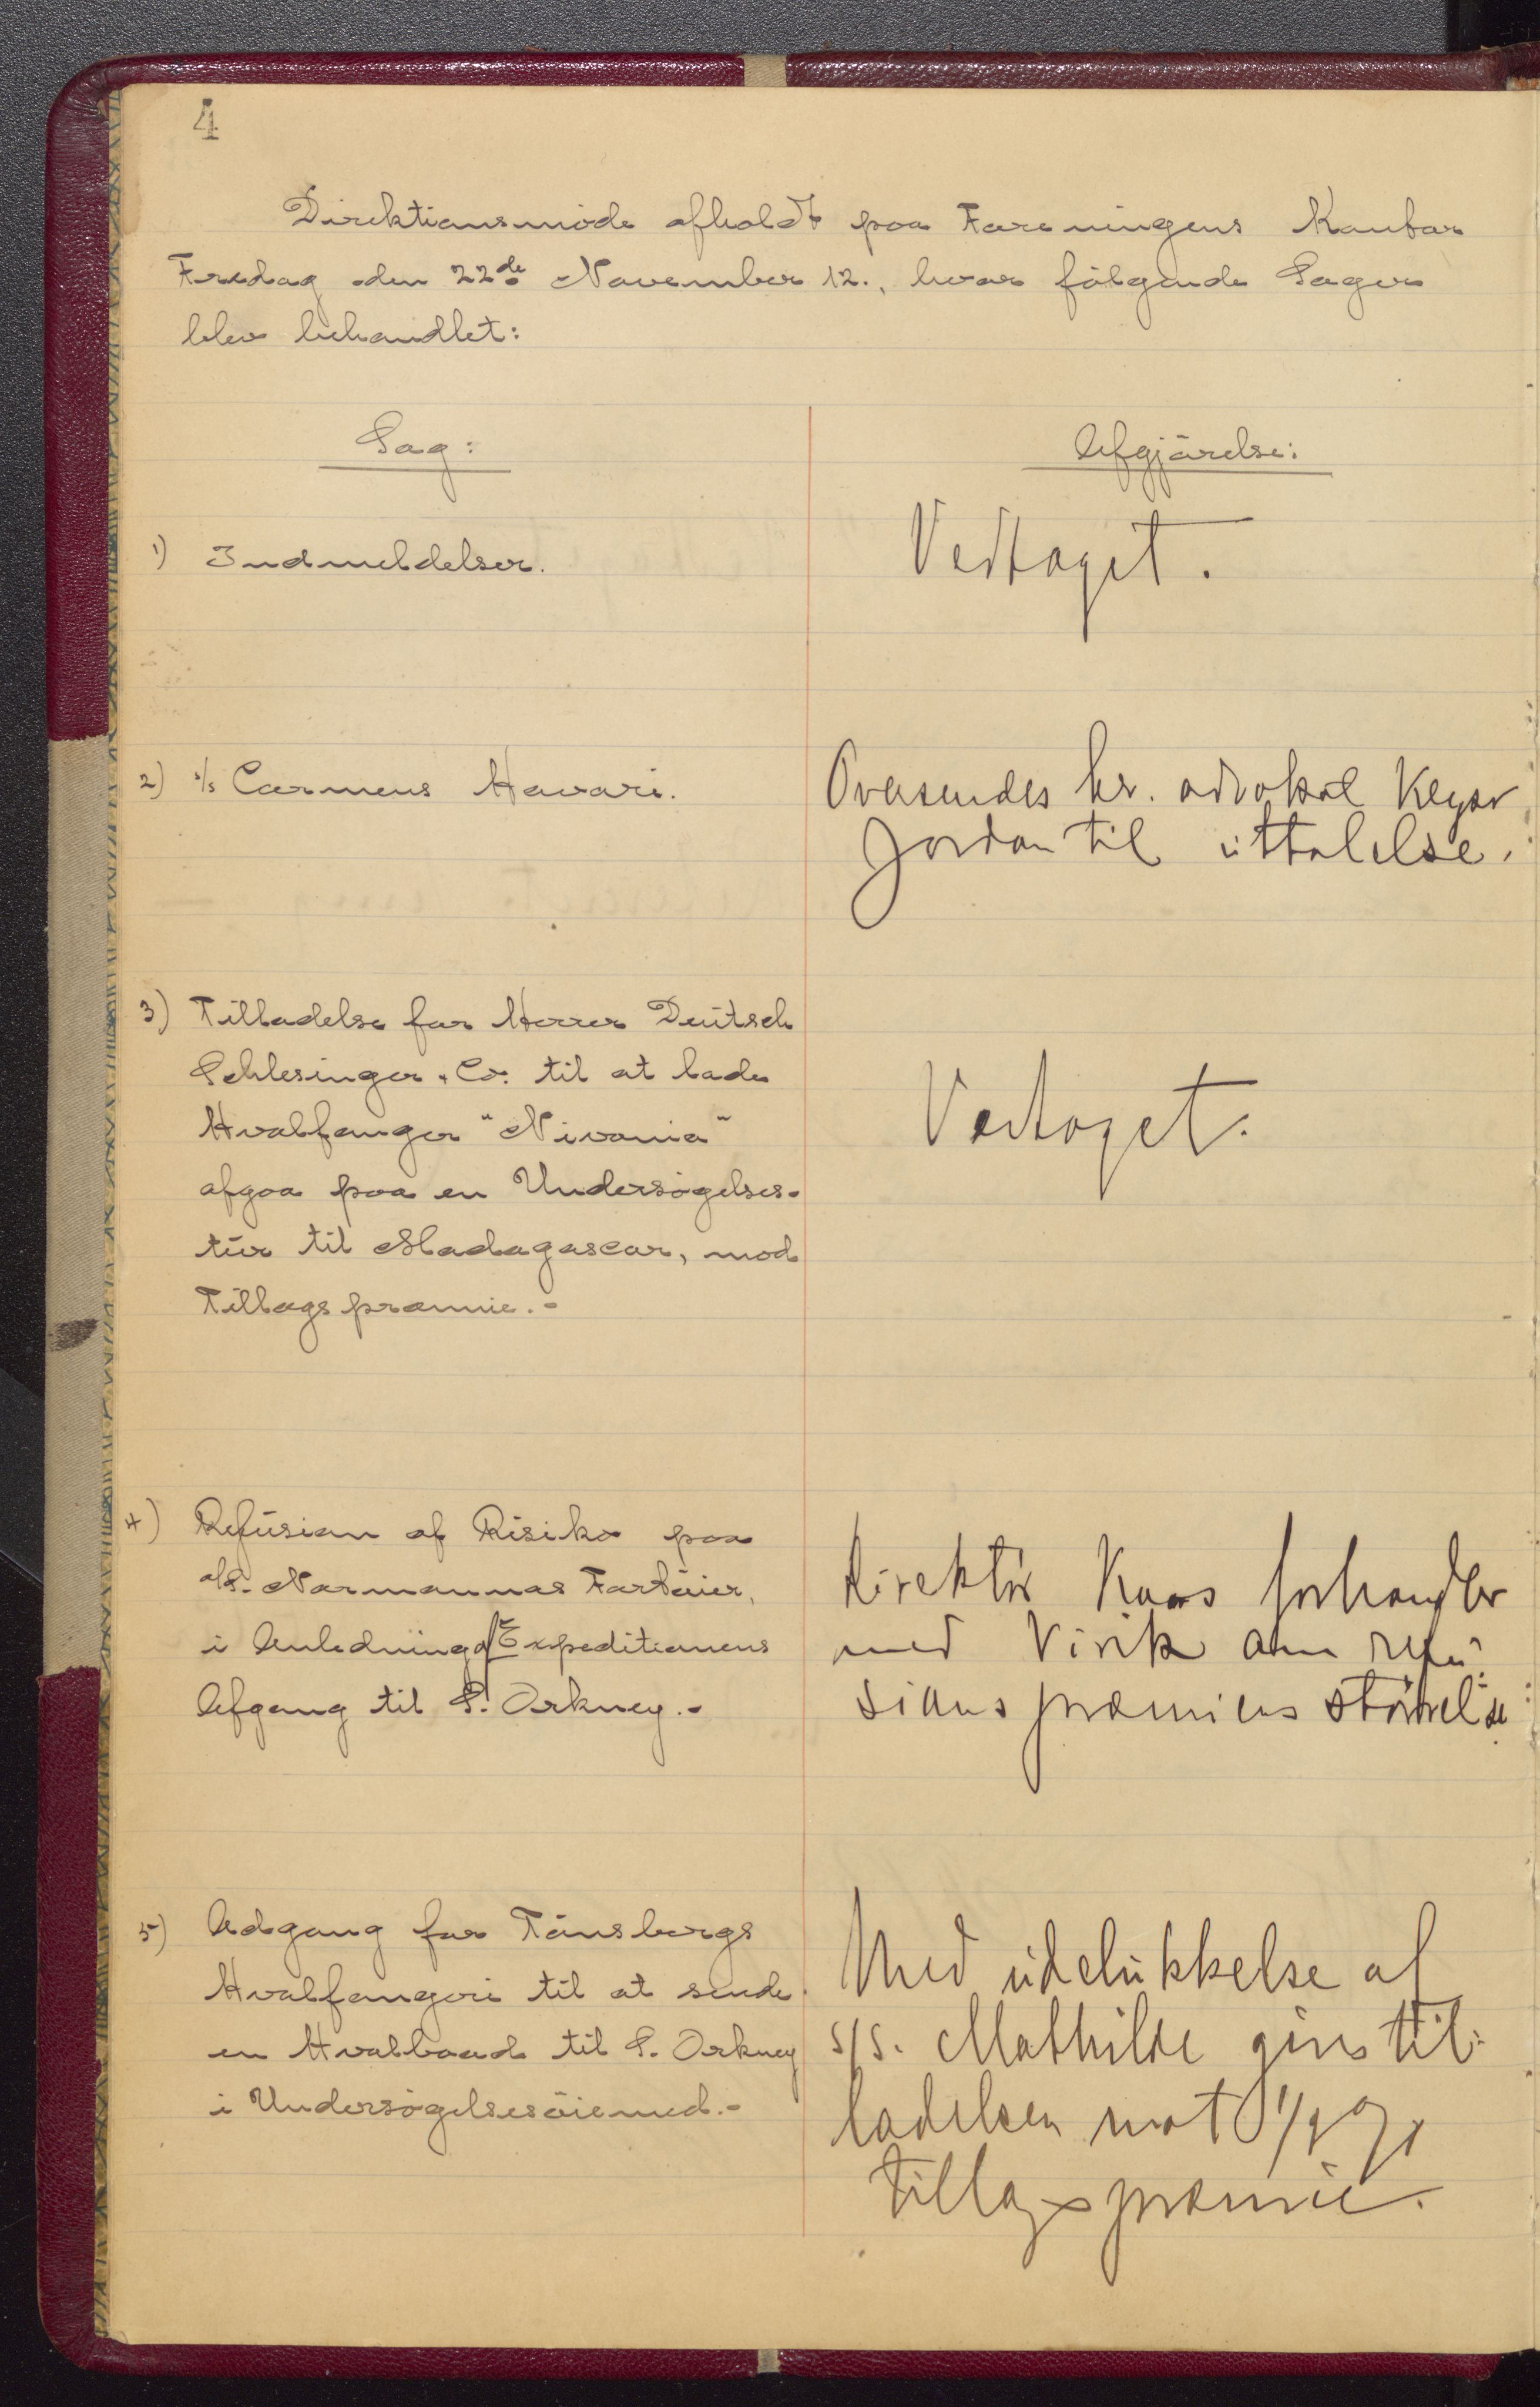 4
Direktionsmöde afholdt paa Foreningens Kontor
Fredag den 22de November 12., hvor fölgende Sager
blev behandlet:
Sag:
Afgjörelse:
1) Indmeldelser.
Vedtaget.
2) s/s Carmens Havari.
Oversendes hr. advokat Keyser
Jordan til uttalelse.
3) Tilladelse for Herrer Deutsch
Schlesinger & Co. til at lade
Hvalfanger "Nivania"
afgaa paa en Undersögelses-
tur til Madagascar, mod
Tillagspræmie.-
Vedtaget.
4) Refusion af Risiko paa
a/s. Normannas Fartöier,
i Anledning af Expeditionens
Afgang til S. Orkney.-
Direktör Kaas forhandler
med Virik om refu-
sionspræmiens störrelse
5) Adgang for Tönsbergs
Hvalfangeri til at sende
en Hvalbaad til S. Orkney
i Undersögelsesöiemed.-
Med udelukkelse af
s/s. Mathilde gives til-
ladelsen mot
tillagspræmie.